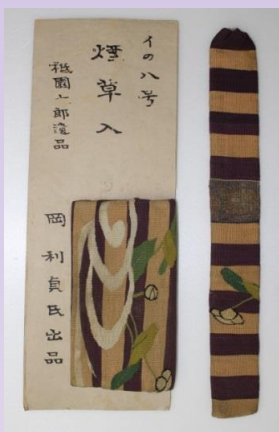 イの八号
煙草入
祇園一郎遺品
岡利貞氏出品